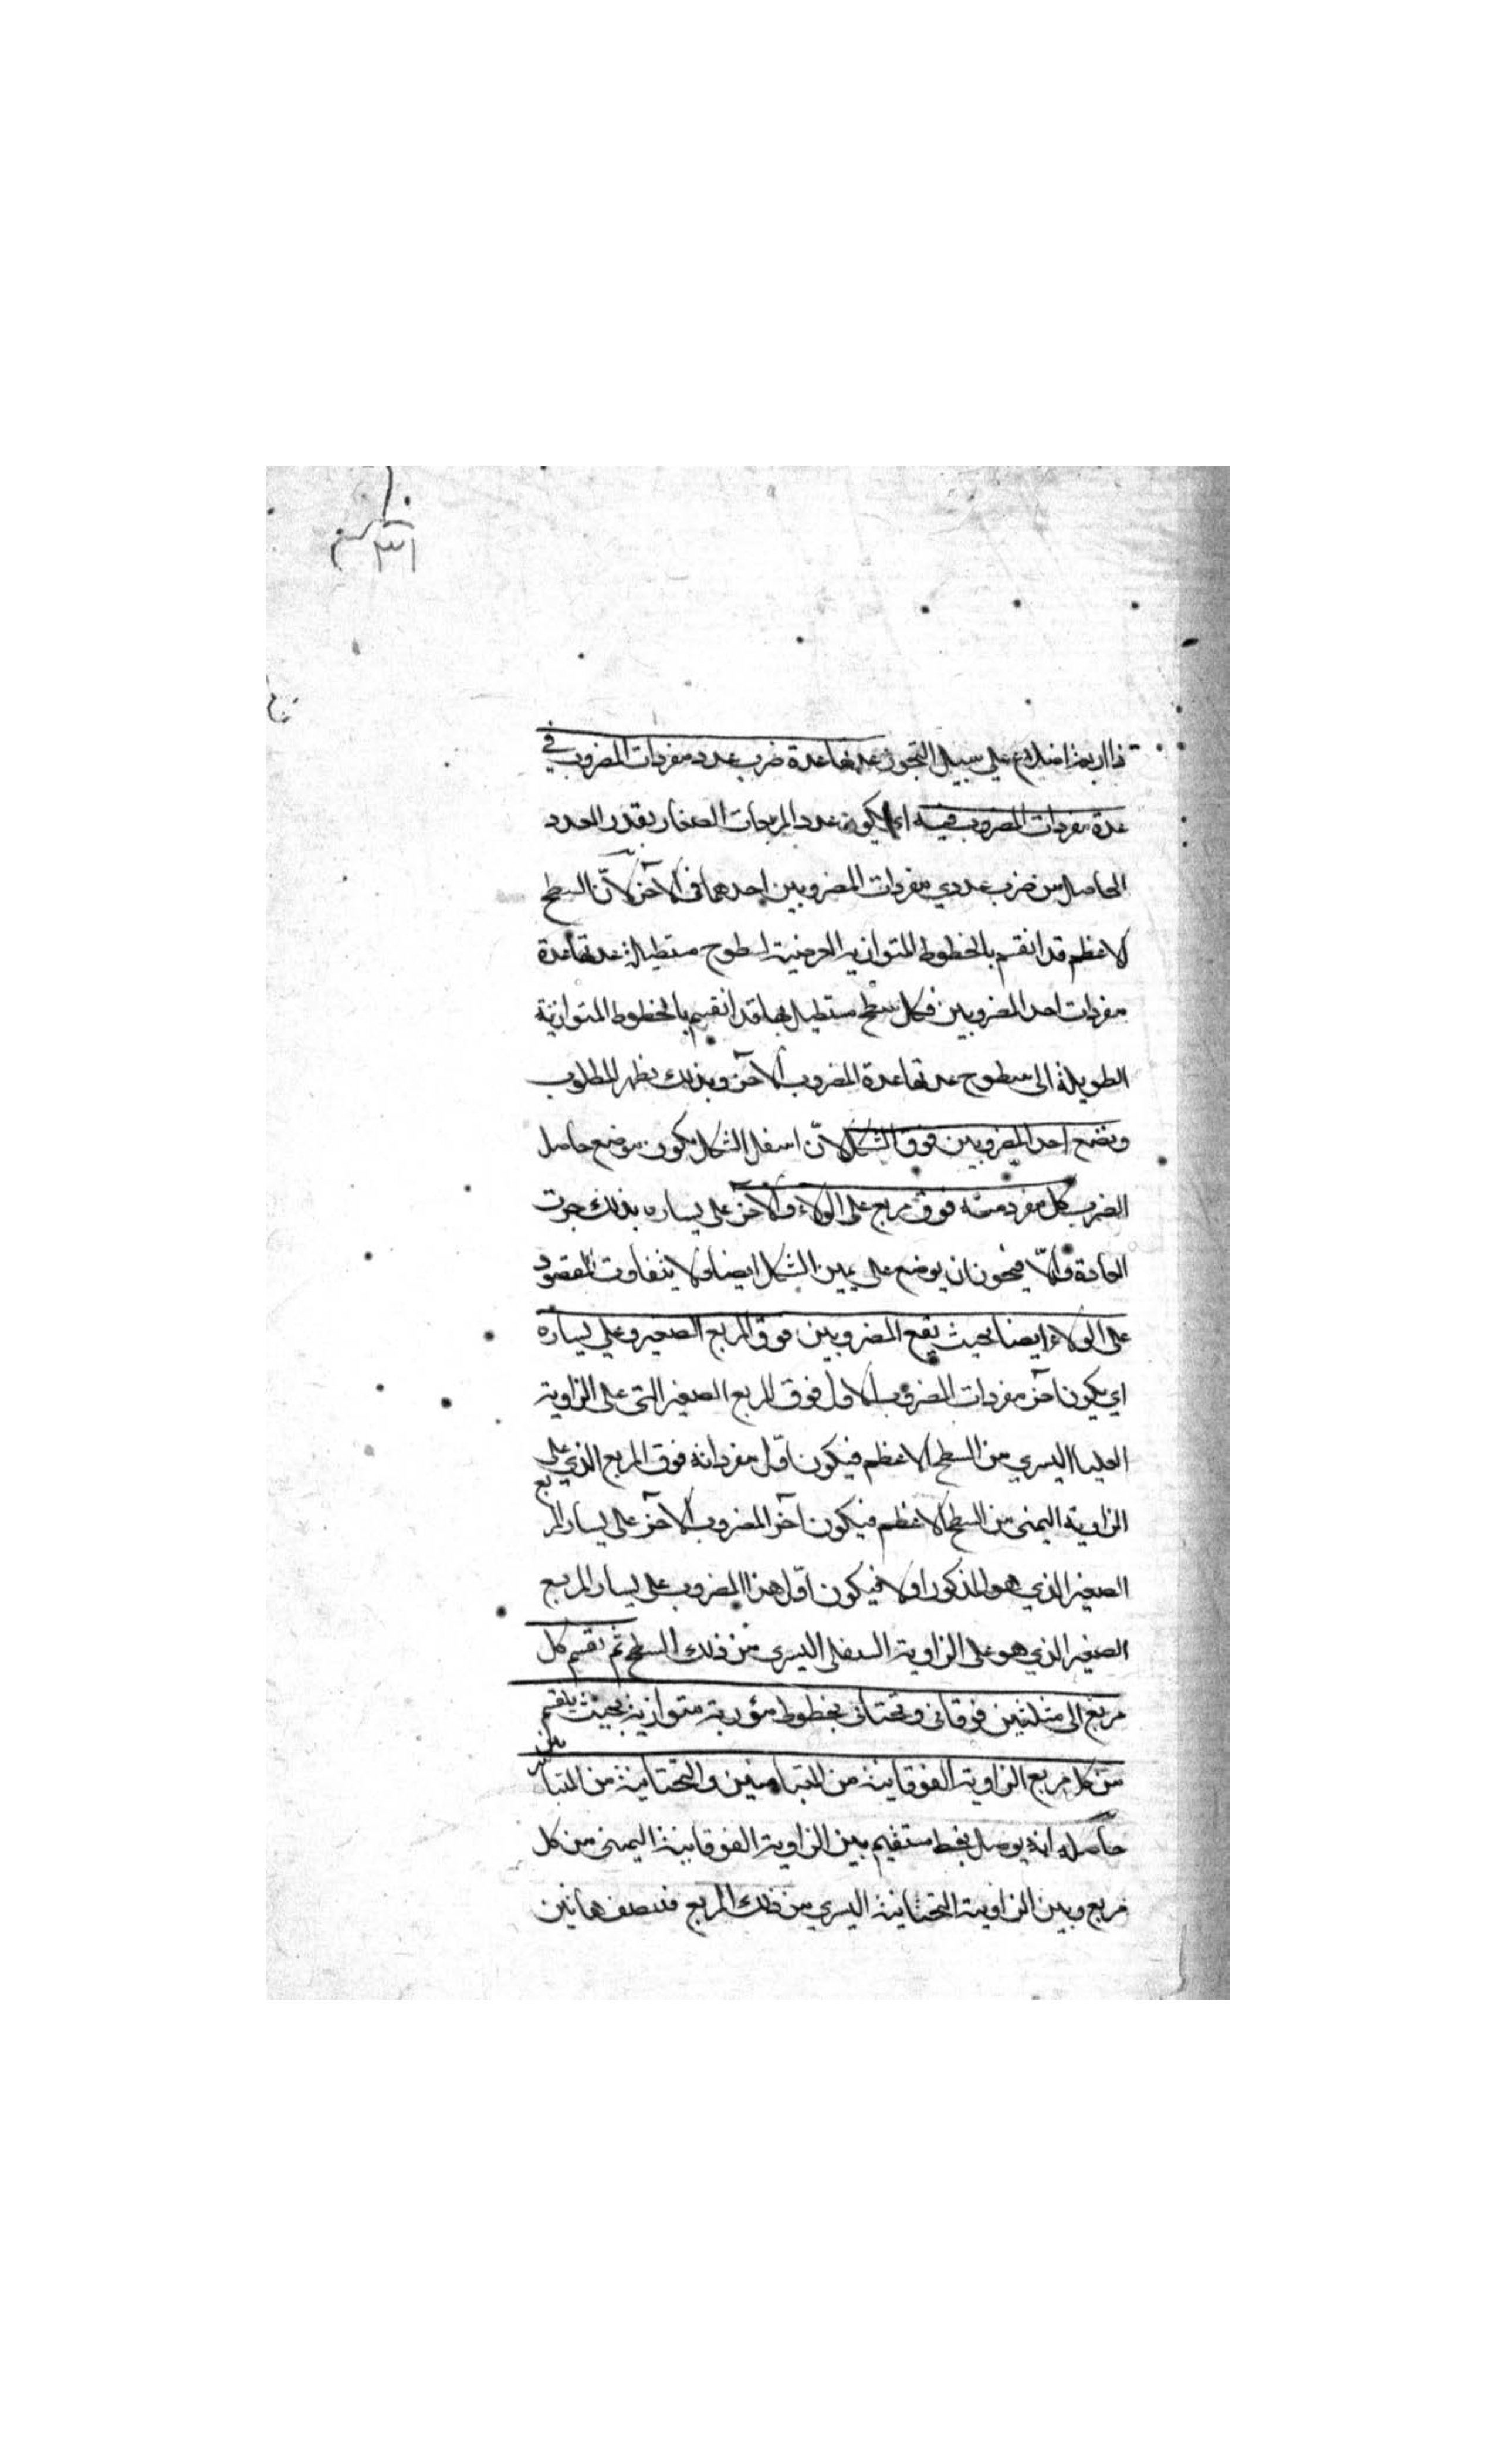 ذا اربعة اضلاع على سبيل التجوز عدتها عدة ضرب عدد مفردات المضروب في
عدة مفردات المضروب فيه اي يكون عدد المربعات الصغار بقدر العدد
الحاصل من ضرب عددي مفردات المضروبين احدهما في الآخر لانّ السطح
الاعظم قد انقسم بالخطوط المتوازية العرضية سطوح مستطيلة عدتها عدة
مفردات احد المضروبين فكل سطح مستطيل بها قد انقسم بالخطوط المتوازية
الطويلة الى سطوح عدتها عدة المضروب الآخر وبذلك يظهر المطلوب
ونضع احد المضروبين فوق الشكل لانّ اسفل الشكل يكون موضع حاصل
الضرب كل مفرد منه فوق مربع على الولاء والآخر على يساره بذلك جرت
العادة والّا فيجوز ان يوضع على يمين الشكل ايضا ولا يتفاوت المقصود
على الولاء ايضا بحيث يقع المضروبين فوق المربع الصغير وعلى يساره
اي يكون آخر مفردات المضروب الاول فوق المربع الصغير التى على الزاوية
العليا اليسرى من السطح الاعظم فيكون اوّل مفرداته فوق المربع الذي على
الزاوية اليمنى من السطح الاعظم فيكون آخر المضروب الآخر على يسار المربع
الصغير الذي هو المذكور اولا فيكون اوّل هذا المضروب على يسار المربع
الصغير الذي هو على الزاوية السفلى اليسرى من ذلك السطح ثم نقسم كل
مربع الى مثلثين فوقانى وتحتانى بخطوط مؤربة متوازية بحيث ينقسم
من كل مربع الزاوية الفوقانية من المتيامنين والتحتانية من المتياسرين
حاصله انه يوصل بخط مستقيم بين الزاوية الفوقانية اليمنى من كل
مربع وبين الزاوية التحتانية اليسرى من ذلك المربع فننصف هاتين